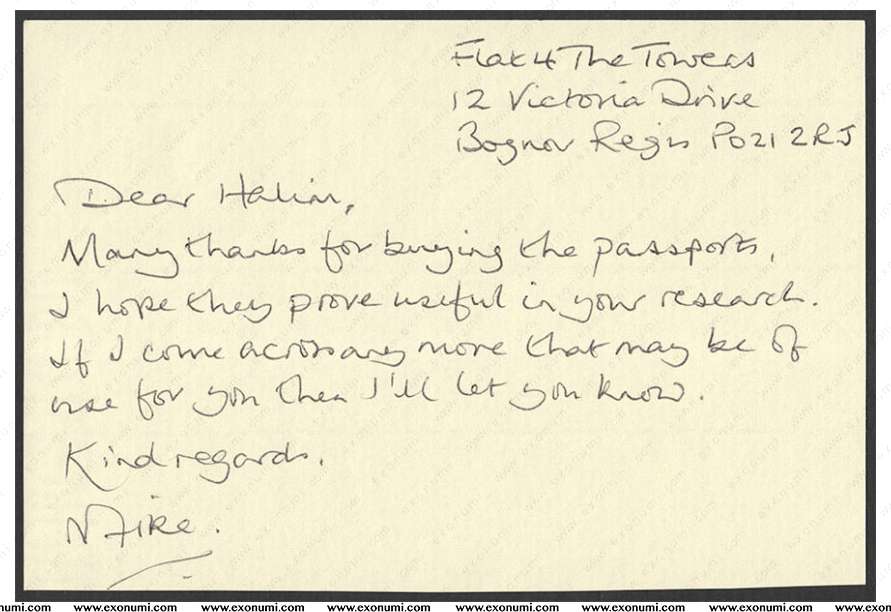 Flat 4 The Towers
12 Victoria Drive
Bognor Regis PO21 2RJ
Dear Halim,
Many thanks for buying the passports,
I hope they prove useful in your research.
If I come across any more that may be of
use for you then I'll let you know.
Kind regards.
Mike.
www.exonumi.com www.exonumi.com www.exonumi.com www.exonumi.com www.exonumi.com www.exonumi.com www.exonumi.com